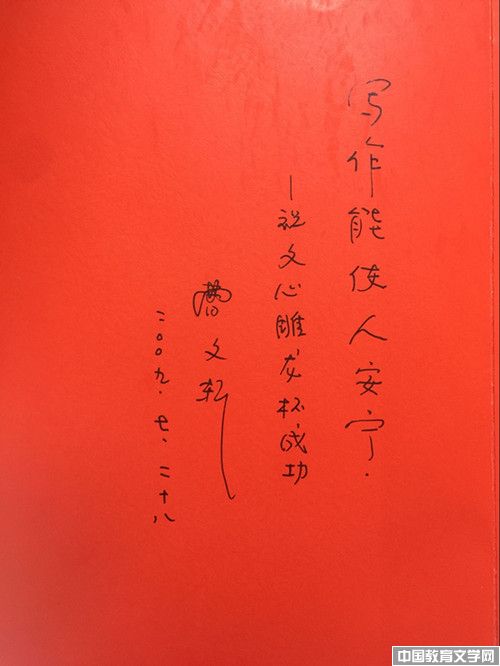 写作能使人安宁.
—祝文心雕龙杯成功
曹文轩
二〇〇九.七.二十八
中国教育文学网